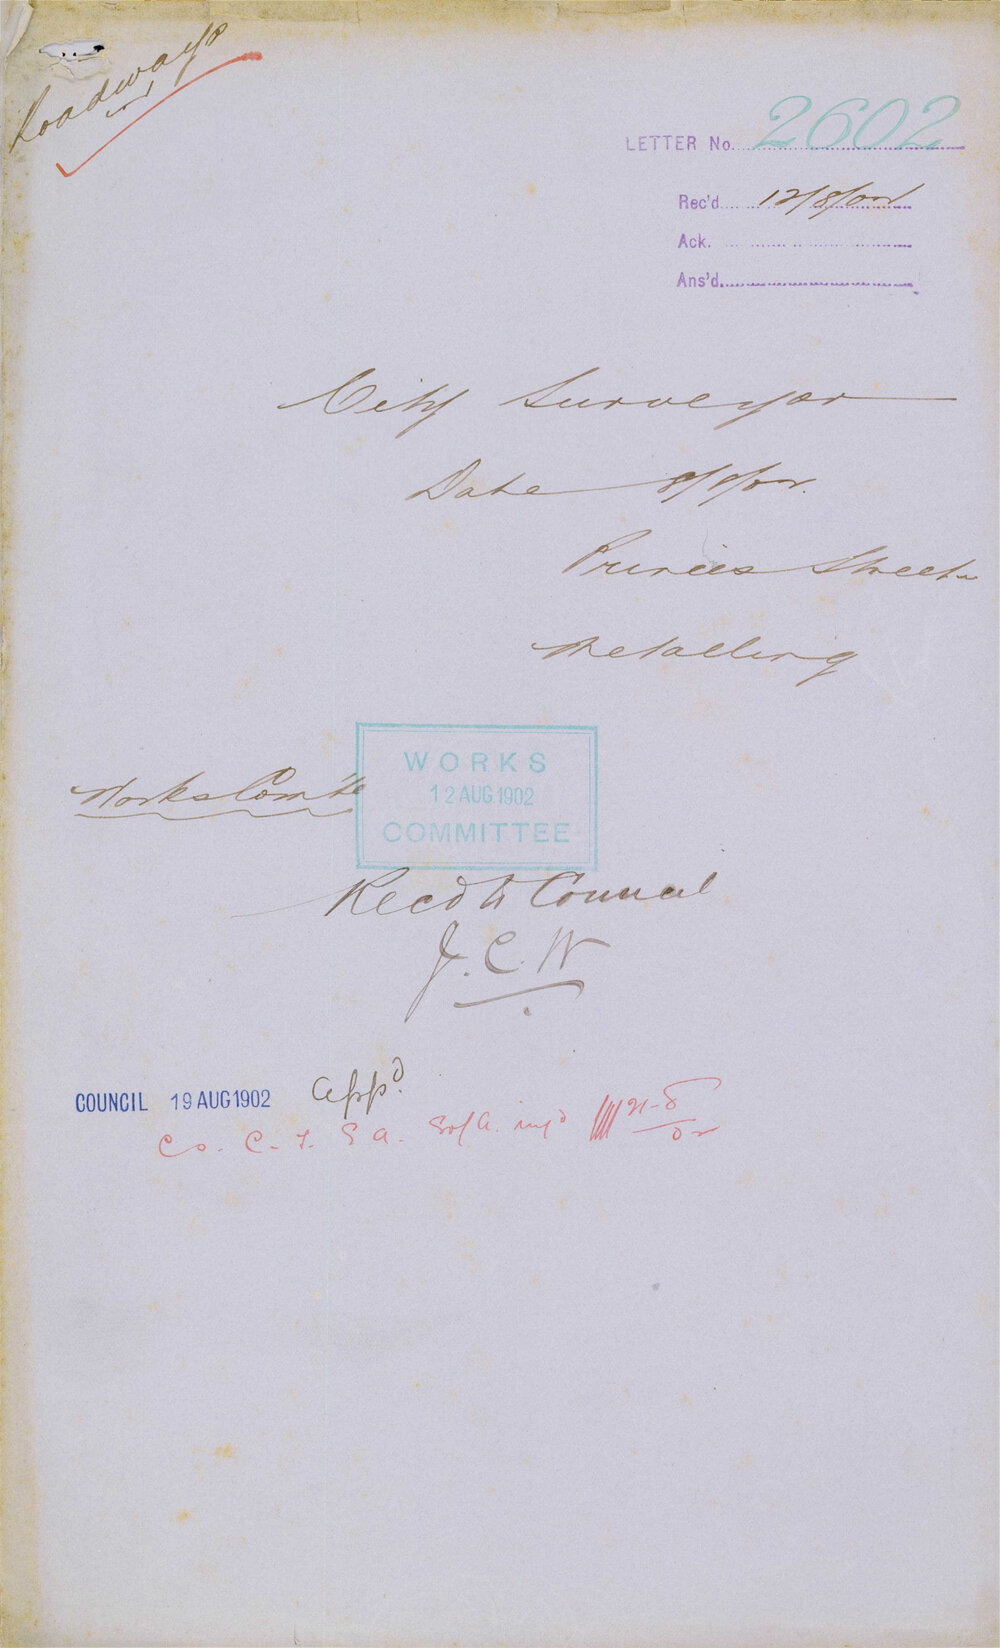 Roadways
LETTER No. 2602
Rec'd 12/8/02
Ack.
Ans'd
City Surveyor
Date 8/8/02.
Princes Street
Metalling
Works Com'tee
WORKS
12 AUG 1902
COMMITTEE
Recd to Council
J. C. W
COUNCIL 19 AUG 1902 appd.
Co. C. T. S a. inf'd 21-8/02